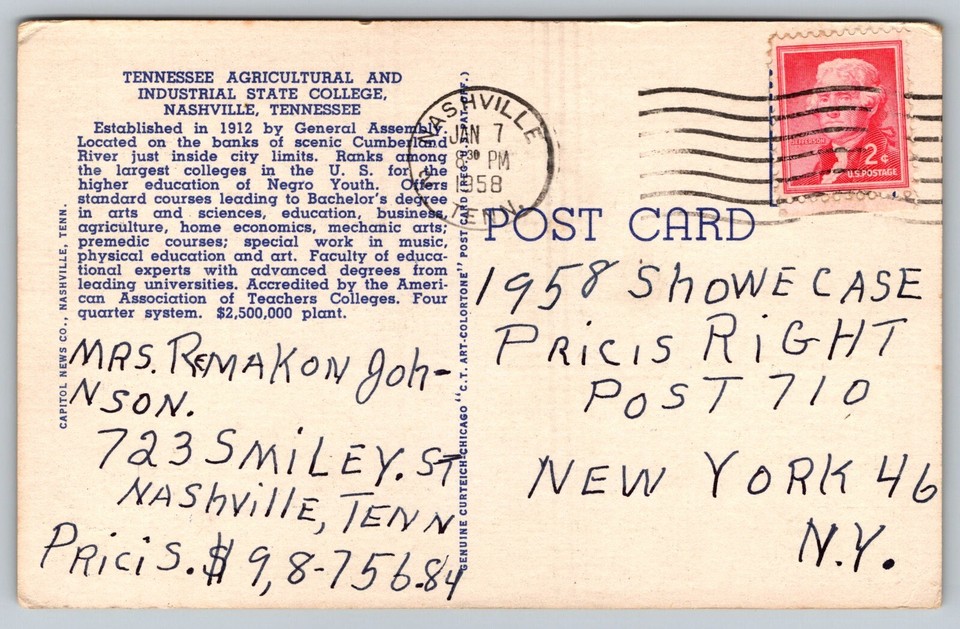 TENNESSEE AGRICULTURAL AND
INDUSTRIAL STATE COLLEGE,
NASHVILLE, TENNESSEE
Established in 1912 by General Assembly.
Located on the banks of scenic Cumberland
River just inside city limits. Ranks among
the largest colleges in the U. S. for the
higher education of Negro Youth. Offers
standard courses leading to Bachelor's degree
in arts and sciences, education, business,
agriculture, home economics, mechanic arts;
premedic courses; special work in music,
physical education and art. Faculty of educa-
tional experts with advanced degrees from
leading universities. Accredited by the Ameri-
can Association of Teachers Colleges. Four
quarter system. $2,500,000 plant.
CAPITOL NEWS CO., NASHVILLE, TENN.
MRS. REMAKON Joh-
NSON.
723 SMiLEY. ST
NAShville, TENN
Pricis. $ 9,8-756.84
GENUINE CURTEICH-CHICAGO "C. T. ART-COLORTONE" POST CARD (REG. U. S. PAT. OFF.)
NASHVILLE
JAN 7
8 30 PM
1958
TENN.
JEFFERSON
2¢
U.S. POSTAGE
POST CARD
1958 ShOWE CASE
PRicis RiGHT
PoST 710
NEW YORK 46
N.Y.